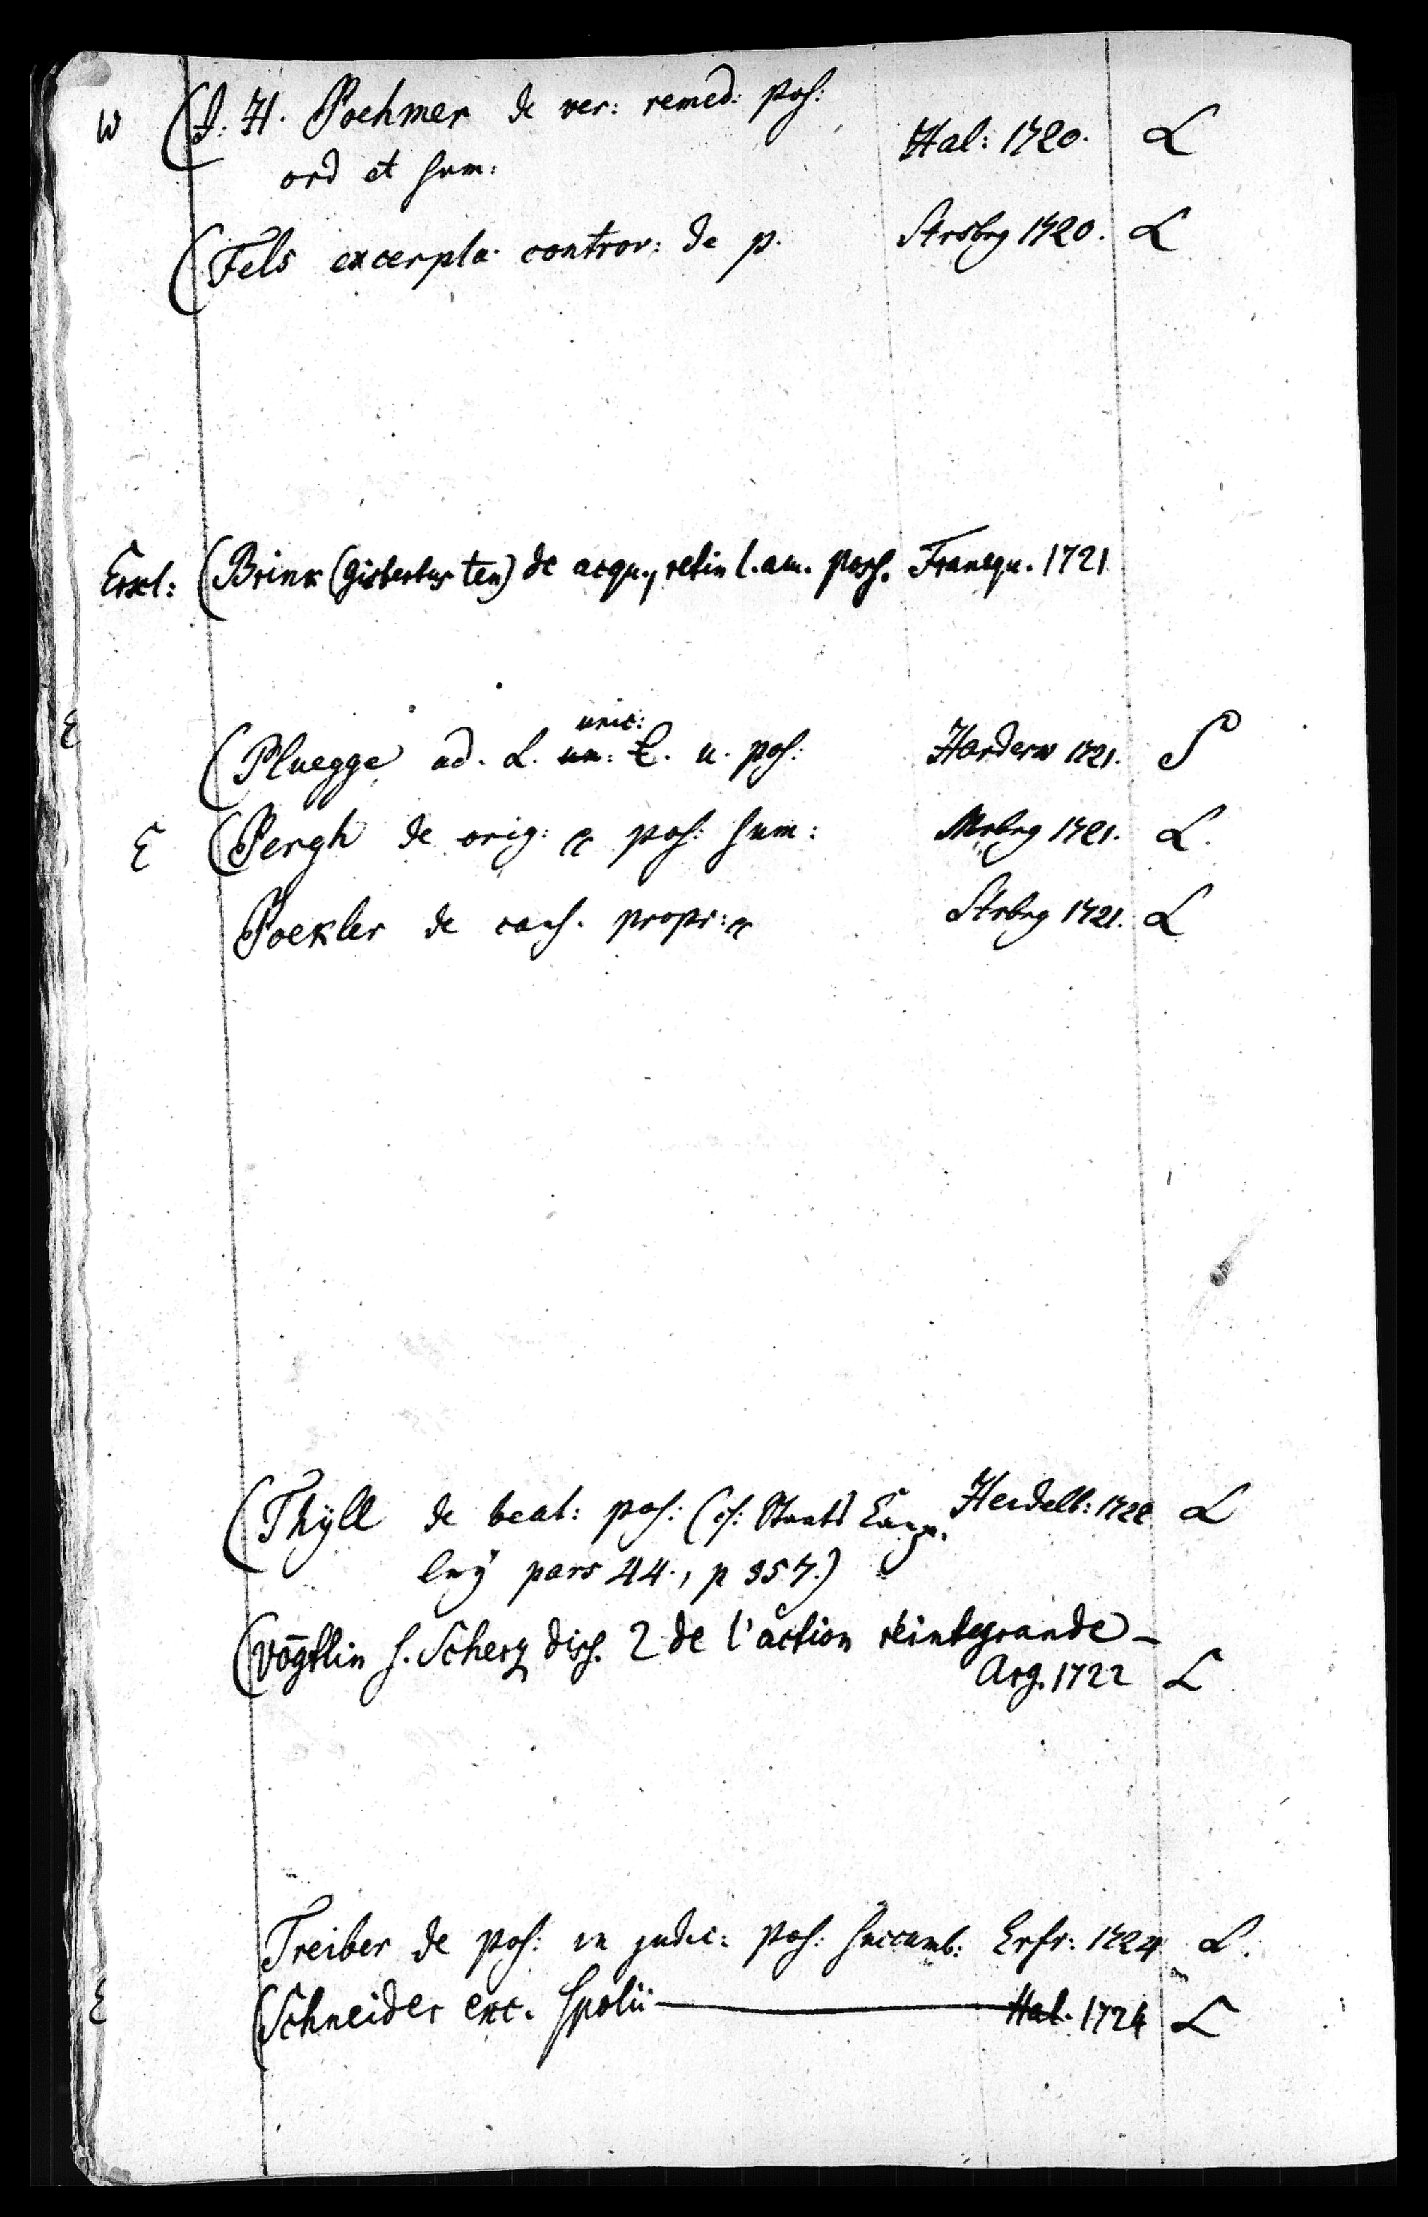 W (J. H. Boehmer de ver: remed: poss: Hal: 1720. L
ord et sum:
(Fels excerpta controv: de p. Strsbrg 1720. L
Erxl: (Brink (Gisbertus ten) de acqu., retin l. am. poss. Franequ. 1721
unic:
(Pluegge ad. L. un: C. u. poss: Harderw 1721. S
E (Bergh de orig: poss: sum: Mrbrg 1721. L.
Boekler de caus. propr: Strbrg 1721. L
(Thÿll de beat: poss: (cf: Staats Canz. Heidelb: 1722 L
leÿ pars 44., p 357.)
(Vögtlin s. Scherz diss. 2 de l'action réintegrande –
Arg. 1722 L
Treiber de poss: in judic: poss: succumb: Erfr: 1724 L.
E (Schneider exc. spolii — Hal. 1724 L